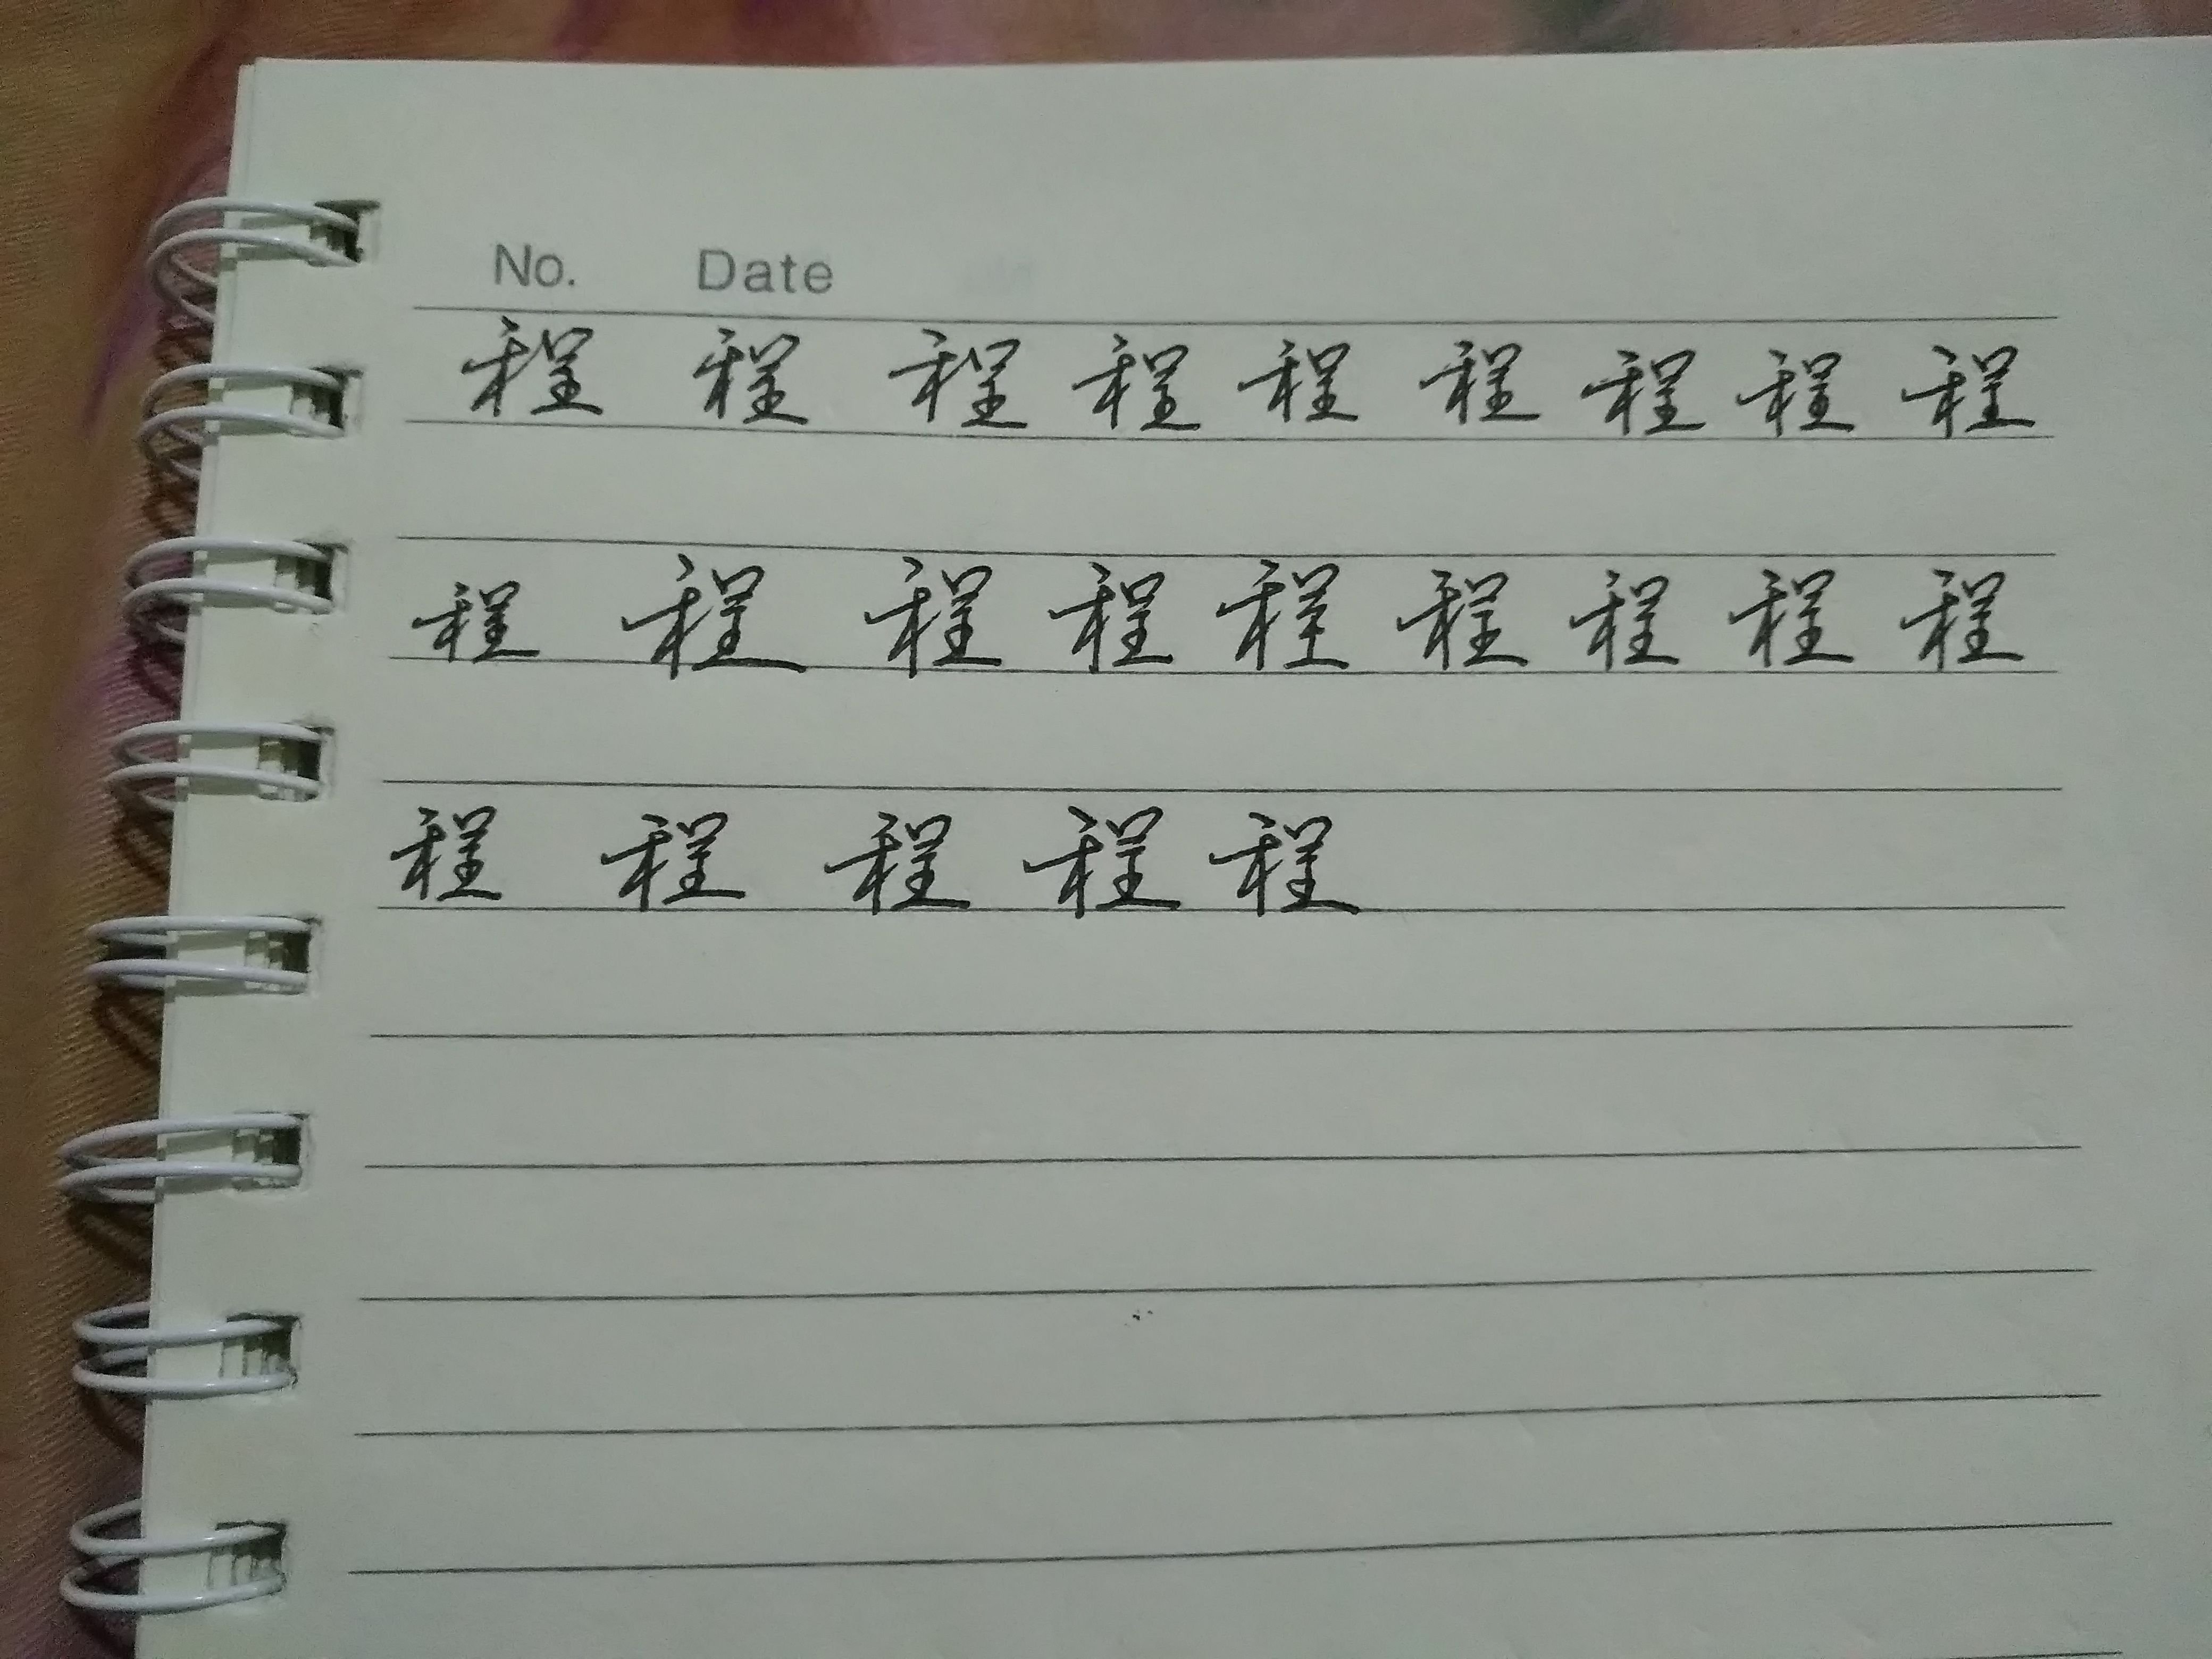 No. Date
程 程 程 程 程 程 程 程 程
程 程 程 程 程 程 程 程 程
程 程 程 程 程